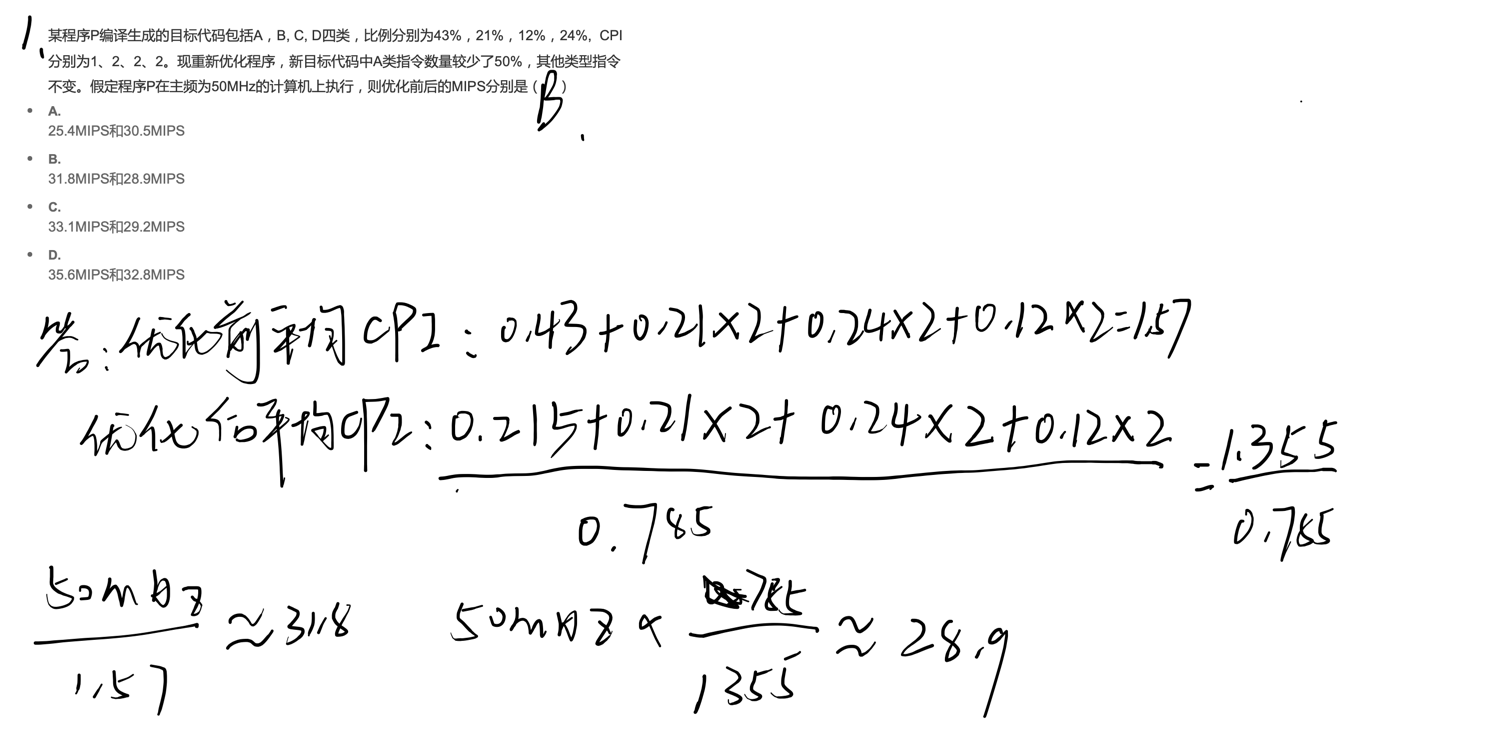 1.
某程序P编译生成的目标代码包括A，B, C, D四类，比例分别为43%，21%，12%，24%, CPI
分别为1、2、2、2。现重新优化程序，新目标代码中A类指令数量较少了50%，其他类型指令
不变。假定程序P在主频为50MHz的计算机上执行，则优化前后的MIPS分别是 ( B )
A.
25.4MIPS和30.5MIPS
B.
31.8MIPS和28.9MIPS
C.
33.1MIPS和29.2MIPS
D.
35.6MIPS和32.8MIPS
答：优化前平均CPI：0.43+0.21×2+0.24×2+0.12×2=1.57
优化后平均CPI：0.215+0.21×2+0.24×2+0.12×2 = 1.355
0.785 0.785
50mHz ≈31.8 50mHz × 785 ≈ 28.9
1.57 1355